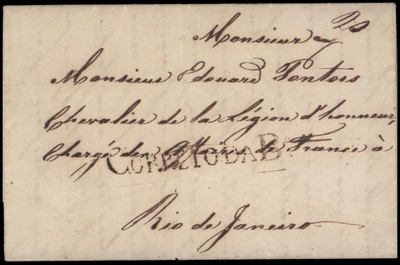 Monsieur
Monsieur Edouard Pontois
Chevalier de la Légion d'honneur,
Chargé des Affaires de France à
CORREIO DA B
Rio de Janeiro